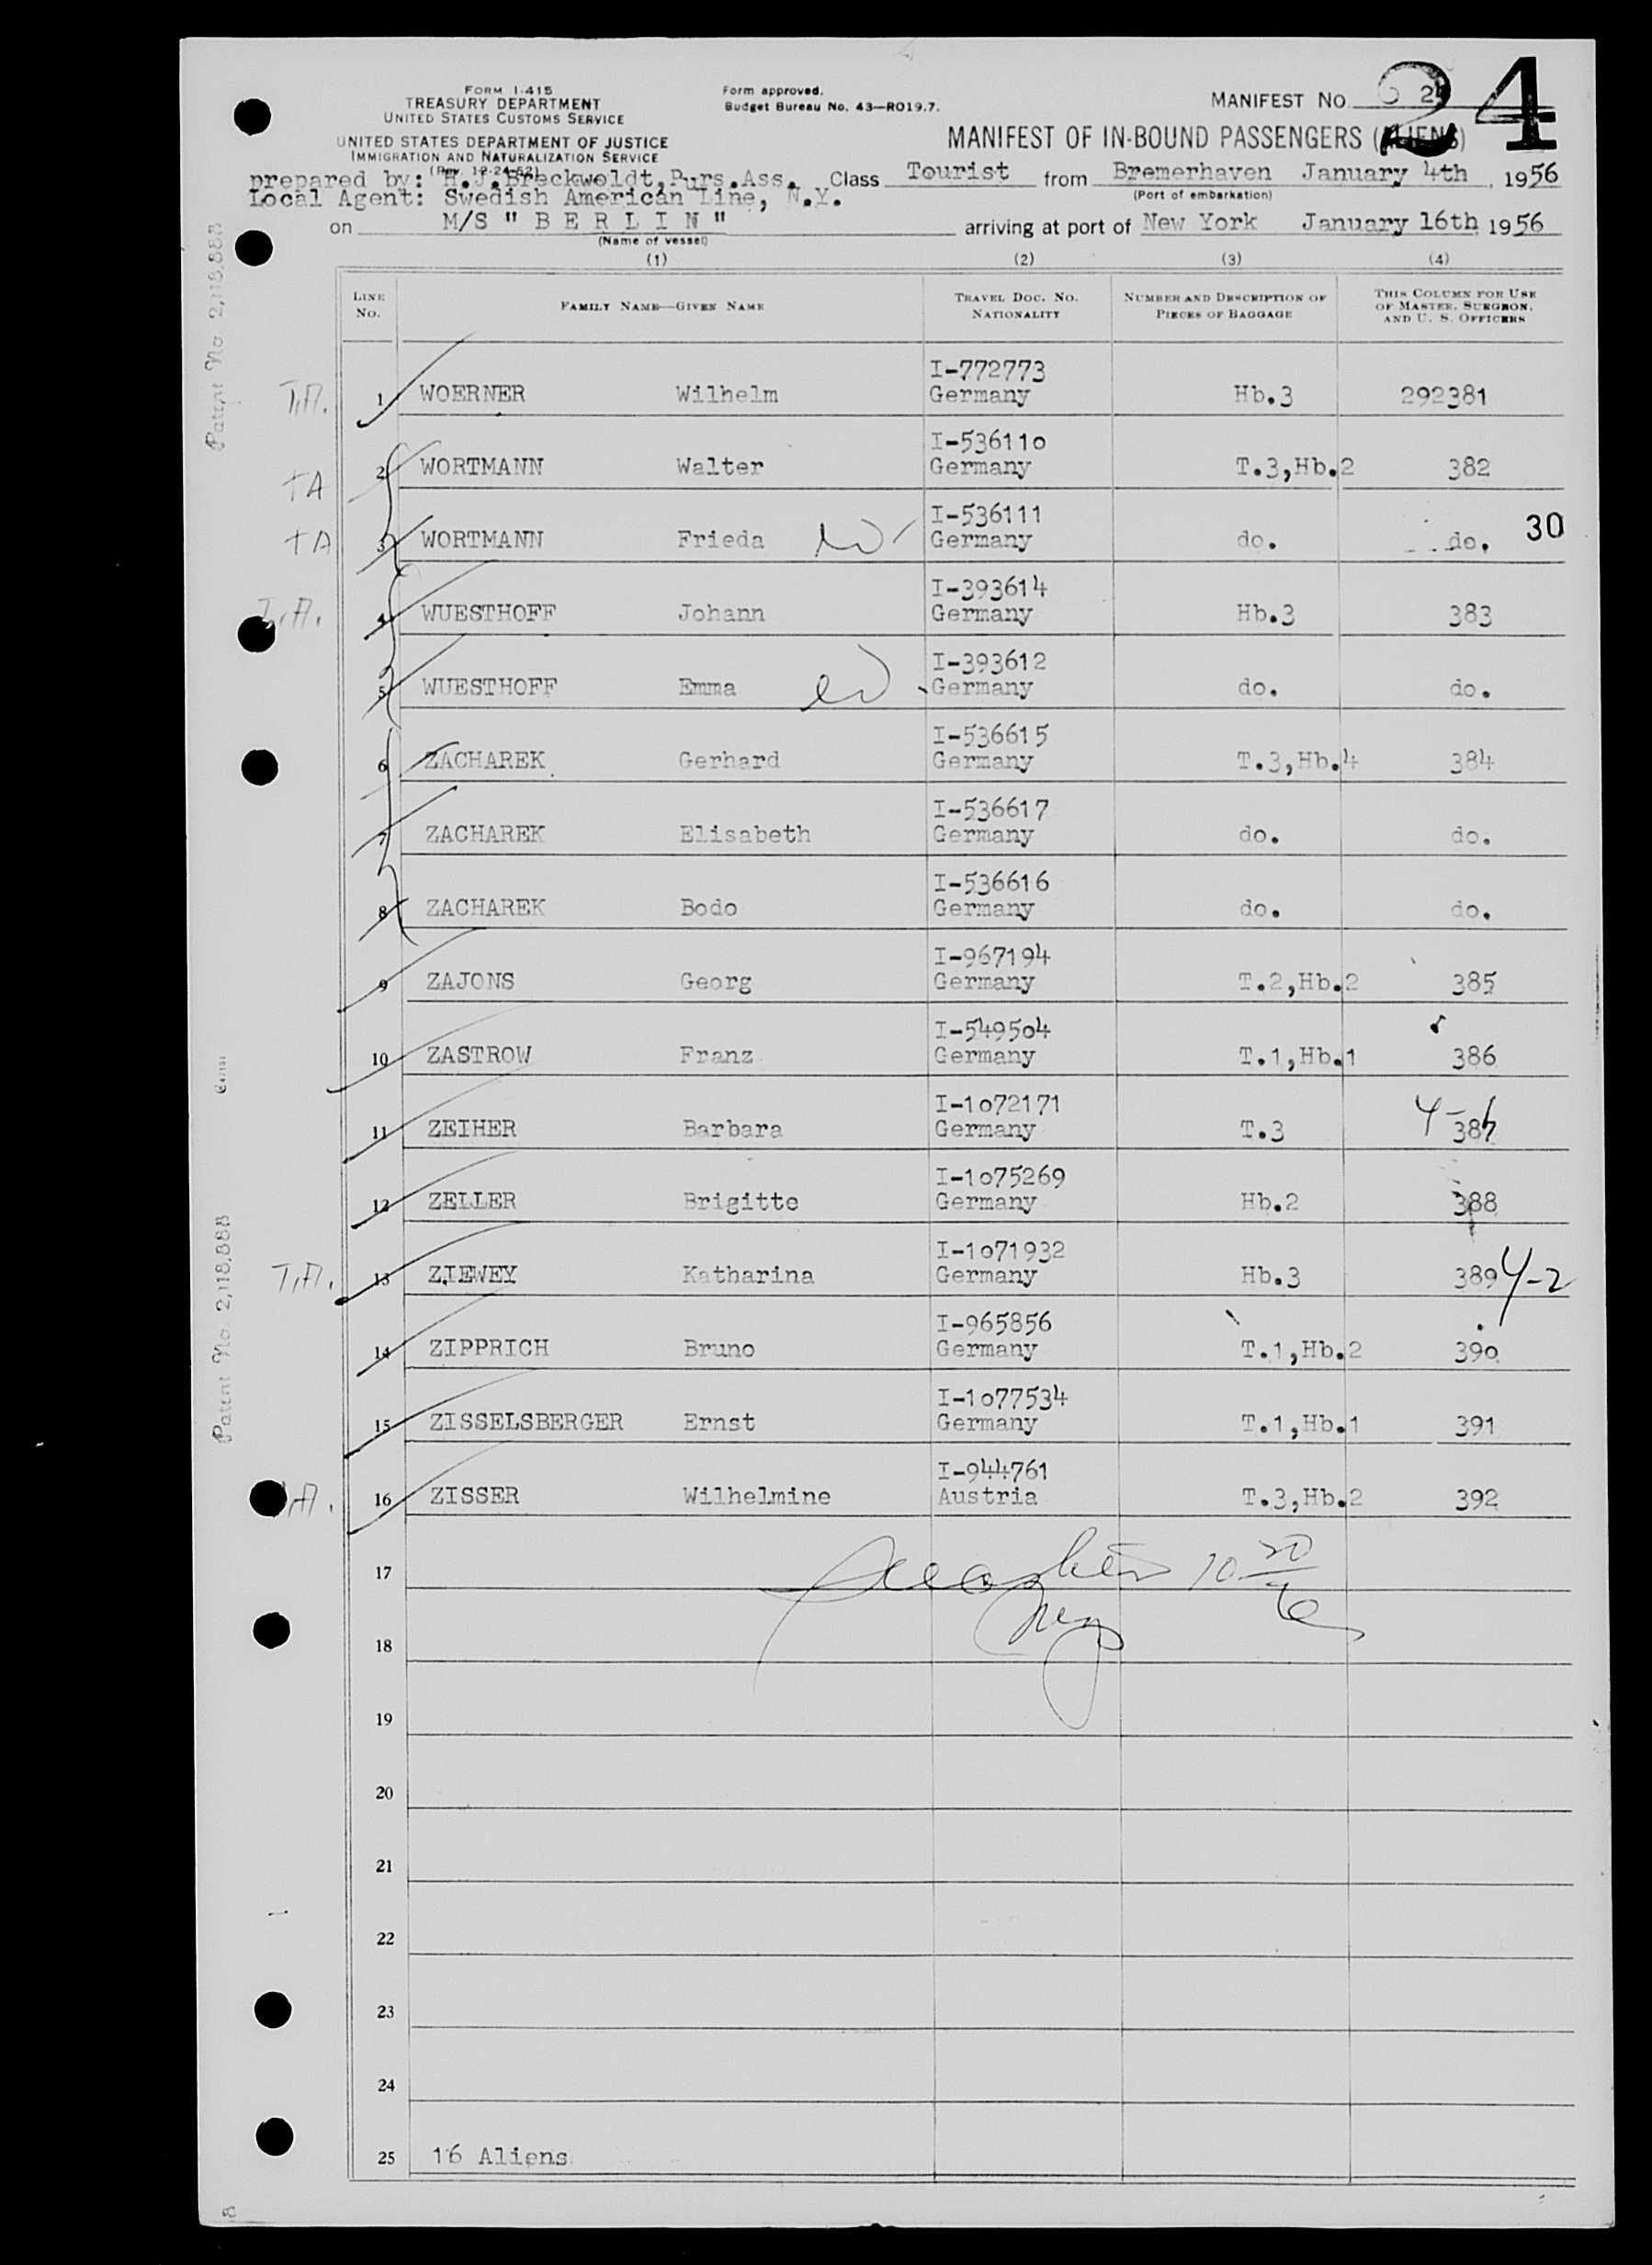 24
FORM I-415
TREASURY DEPARTMENT
UNITED STATES CUSTOMS SERVICE
UNITED STATES DEPARTMENT OF JUSTICE
IMMIGRATION AND NATURALIZATION SERVICE
(Rev. 12-24-52)
Form approved.
Budget Bureau No. 43—RO19.7.
MANIFEST NO. 24
MANIFEST OF IN-BOUND PASSENGERS (ALIENS)
prepared by: H.J.Breckwoldt,Purs.Ass. Class Tourist from Bremerhaven January 4th, 1956
(Port of embarkation)
Local Agent: Swedish American Line, N.Y.
on M/S " B E R L I N " arriving at port of New York January 16th 1956
(Name of vessel)
(1) (2) (3) (4)
LINE NO. FAMILY NAME—GIVEN NAME TRAVEL DOC. NO. NATIONALITY NUMBER AND DESCRIPTION OF PIECES OF BAGGAGE THIS COLUMN FOR USE OF MASTER, SURGEON, AND U. S. OFFICERS
I-772773
T.A. 1 WOERNER Wilhelm Germany Hb.3 292381
I-536110
TA 2 WORTMANN Walter Germany T.3,Hb.2 382
I-536111
TA 3 WORTMANN Frieda Germany do. do. 30
I-393614
T.A. 4 WUESTHOFF Johann Germany Hb.3 383
I-393612
5 WUESTHOFF Emma Germany do. do.
I-536615
6 ZACHAREK Gerhard Germany T.3,Hb.4 384
I-536617
7 ZACHAREK Elisabeth Germany do. do.
I-536616
8 ZACHAREK Bodo Germany do. do.
I-967194
9 ZAJONS Georg Germany T.2,Hb.2 385
I-549504
10 ZASTROW Franz Germany T.1,Hb.1 386
I-1072171
11 ZEIHER Barbara Germany T.3 387
I-1075269
12 ZELLER Brigitte Germany Hb.2 388
I-1071932
T.A. 13 ZIEWEY Katharina Germany Hb.3 389 4-2
I-965856
14 ZIPPRICH Bruno Germany T.1,Hb.2 390
I-1077534
15 ZISSELSBERGER Ernst Germany T.1,Hb.1 391
I-944761
16 ZISSER Wilhelmine Austria T.3,Hb.2 392
17
18
19
20
21
22
23
24
25 16 Aliens
Patent No. 2,118,888
Patent No. 2,118,888